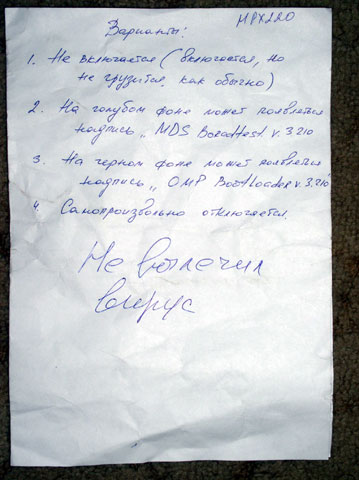 MPX220
Варианты:
1. Не включается (включается, но
не грузится, как обычно)
2. На голубом фоне может появляться
надпись „ MDS Boardtest v. 3.210
3. На черном фоне может появляться
надпись „ OMP Bootloader v. 3.210
4 Самопроизвольно отключается.
Не вылечил
вирус